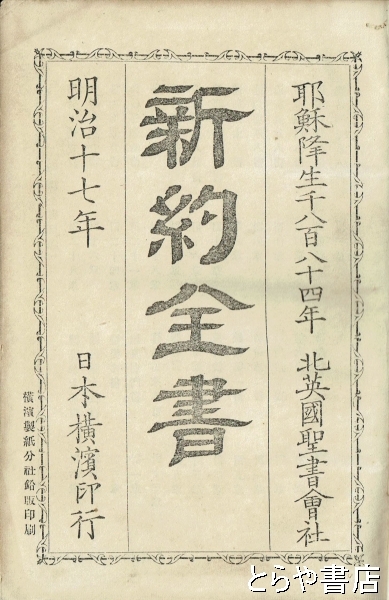 耶穌降生千八百八十四年 北英國聖書會社
新約全書
明治十七年 日本橫濱印行
橫濱製紙分社鉛版印刷
とらや書店